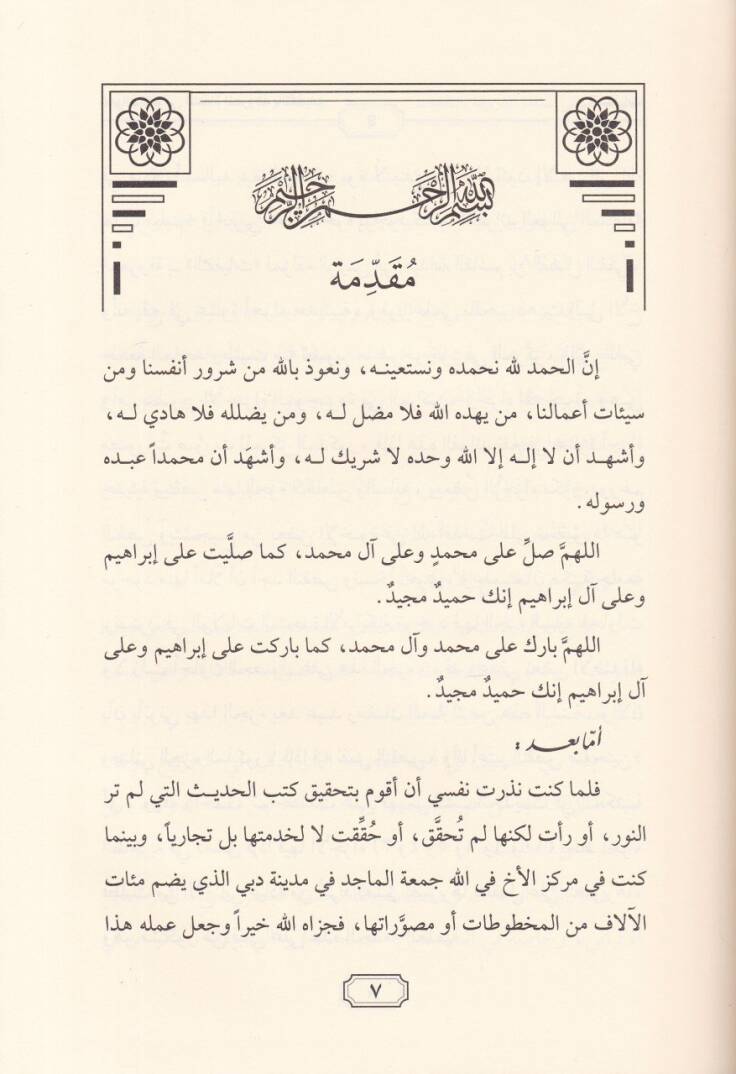 بسم الله الرحمن الرحيم
مُقَدِّمَة
إنَّ الحمد لله نحمده ونستعينـه، ونعوذ بالله من شرور أنفسنا ومن
سيئات أعمالنا، من يهده الله فلا مضل لـه، ومن يضلله فلا هادي لـه،
وأشهـد أن لا إلـه إلا الله وحده لا شريك لـه، وأشهَد أن محمداً عبده
ورسوله.
اللهمَّ صلِّ على محمدٍ وعلى آل محمد، كما صلَّيت على إبراهيم
وعلى آل إبراهيم إنك حميدٌ مجيدٌ.
اللهمَّ بارك على محمد وآل محمد، كما باركت على إبراهيم وعلى
آل إبراهيم إنك حميدٌ مجيدٌ.
أمّا بعـد :
فلما كنت نذرت نفسي أن أقوم بتحقيق كتب الحديـث التي لم تر
النور، أو رأت لكنها لم تُحقَّق، أو حُقِّقت لا لخدمتها بل تجارياً، وبينما
كنت في مركز الأخ في الله جمعة الماجد في مدينة دبي الذي يضم مئات
الآلاف من المخطوطات أو مصوَّراتها، فجزاه الله خيراً وجعل عمله هذا
٧